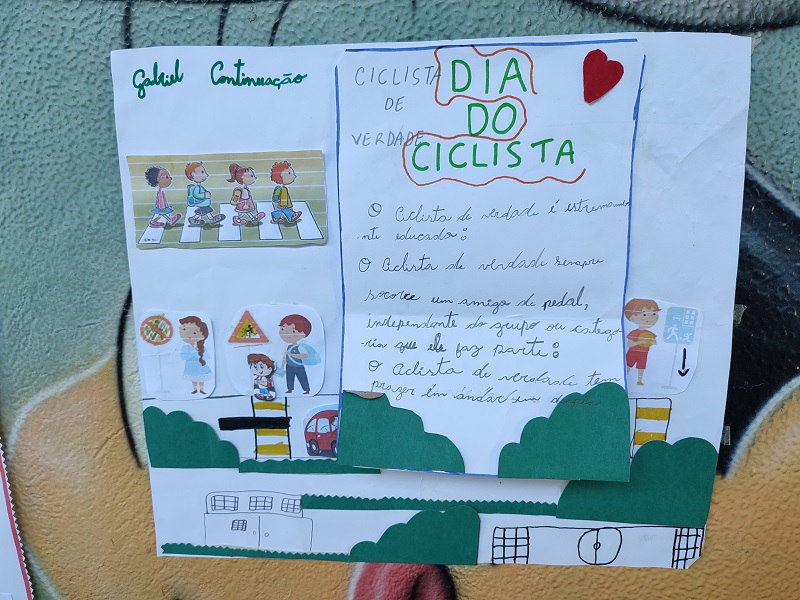 Gabriel Continuação
CICLISTA
DE
VERDADE
DIA
DO
CICLISTA
O Ciclista de verdade é
nte educado:
O Ciclista de verdade sempre
socorre um amigo de pedal,
independente do grupo ou catego-
ria que ele faz parte:
O Ciclista de verdade tem
prazer em andar em